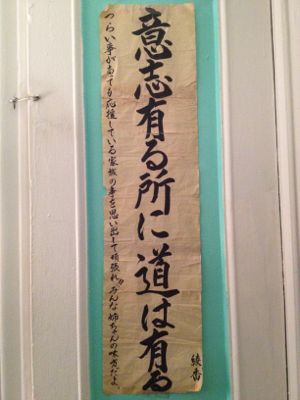 意志有る所に道は有る
つらい事があっても応援している家族の事を思い出して頑張れ!!みんな姉ちゃんの味方だよ。
綾香